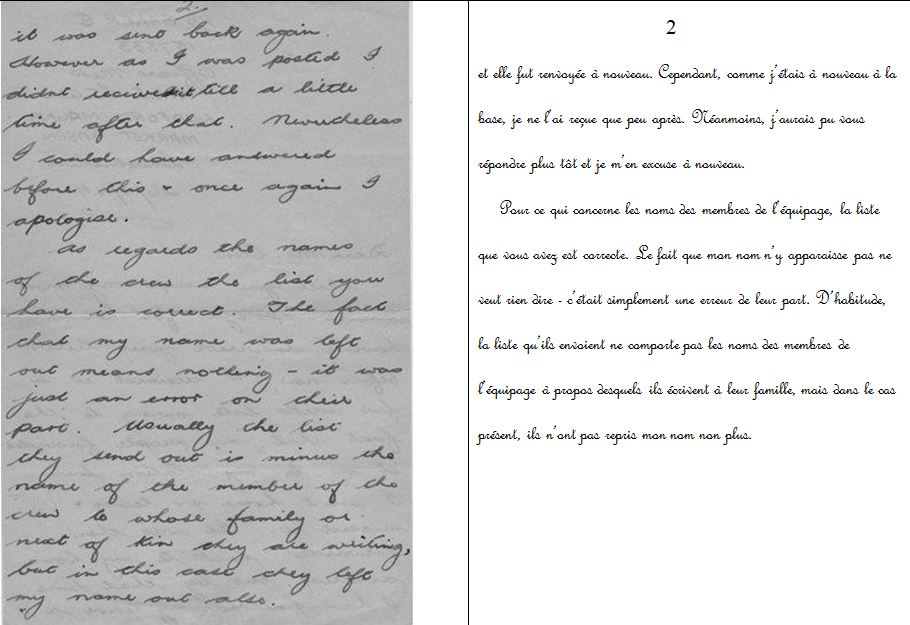 2.
it was sent back again.
However as I was posted I
didnt recieve it till a little
time after that. Nevertheless
I could have answered
before this & once again I
apologise.
As regards the names
of the crew the list you
have is correct. The fact
that my name was left
out means nothing - it was
just an error on their
part. Usually the list
they send out is minus the
name of the member of the
crew to whose family or
next of kin they are writing,
but in this case they left
my name out also.
2
et elle fut renvoyée à nouveau. Cependant, comme j'étais à nouveau à la
base, je ne l'ai reçue que peu après. Néanmoins, j'aurais pu vous
répondre plus tôt et je m'en excuse à nouveau.
Pour ce qui concerne les noms des membres de l'équipage, la liste
que vous avez est correcte. Le fait que mon nom n'y apparaisse pas ne
veut rien dire - c'était simplement une erreur de leur part. D'habitude,
la liste qu'ils envoient ne comporte pas les noms des membres de
l'équipage à propos desquels ils écrivent à leur famille, mais dans le cas
présent, ils n'ont pas repris mon nom non plus.